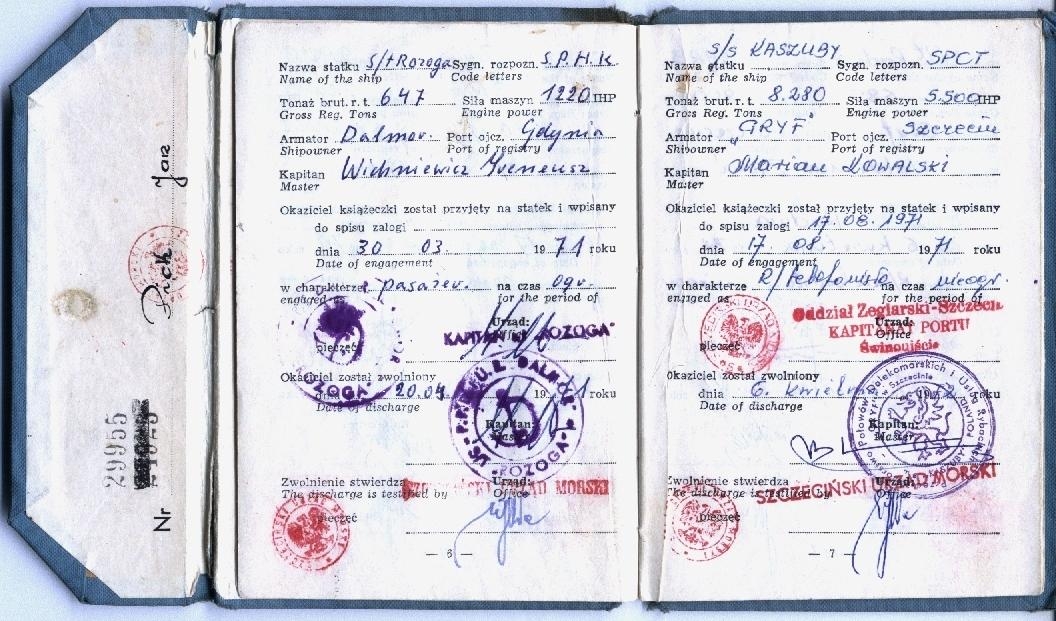 Nr 29955
Jan
Nazwa statku S/t Rozoga Sygn. rozpozn. S.P.H.K.
Name of the ship Code letters
Tonaż brut. r. t. 647 Siła maszyn 1220 IHP
Gross Reg. Tons Engine power
Armator Dalmor. Port ojcz. Gdynia
Shipowner Port of registry
Kapitan Wichniewicz Ireneusz
Master
Okaziciel książeczki został przyjęty na statek i wpisany
do spisu załogi
dnia 30 03. 1971 roku
Date of engagement
w charakterze pasażer. na czas ogr.
engaged as for the period of
Urząd:
Office
KAPITAN ROZOGA"
pieczęć
ROZOGA
Okaziciel został zwolniony
dnia 20.04 1971 roku
Date of discharge
Kapitan:
Master
ROZOGA
Zwolnienie stwierdza Urząd:
The discharge is testified by Office
SZCZECIŃSKI URZĄD MORSKI
pieczęć
— 6 —
s/s KASZUBY
Nazwa statku Sygn. rozpozn. SPCT
Name of the ship Code letters
Tonaż brut. r. t. 8.280 Siła maszyn 5.500 IHP
Gross Reg. Tons Engine power
Armator "GRYF" Port ojcz. Szczecin
Shipowner Port of registry
Kapitan Marian KOWALSKI
Master
Okaziciel książeczki został przyjęty na statek i wpisany
do spisu załogi 17.08.1971
dnia 17. 08. 1971 roku
Date of engagement
w charakterze R/telefonista na czas nieogr.
engaged as for the period of
Oddział Żeglarski-Szczecin
Urząd:
Office
KAPITANAT PORTU
Świnoujście
pieczęć
Okaziciel został zwolniony
dnia 6. kwietnia 1972 roku
Date of discharge
Kapitan:
Master
Połowów Dalekomorskich i Usług Rybackich
"GRYF" w Szczecinie
POLAND
Zwolnienie stwierdza Urząd:
The discharge is testified by Office
SZCZECIŃSKI URZĄD MORSKI
pieczęć
— 7 —